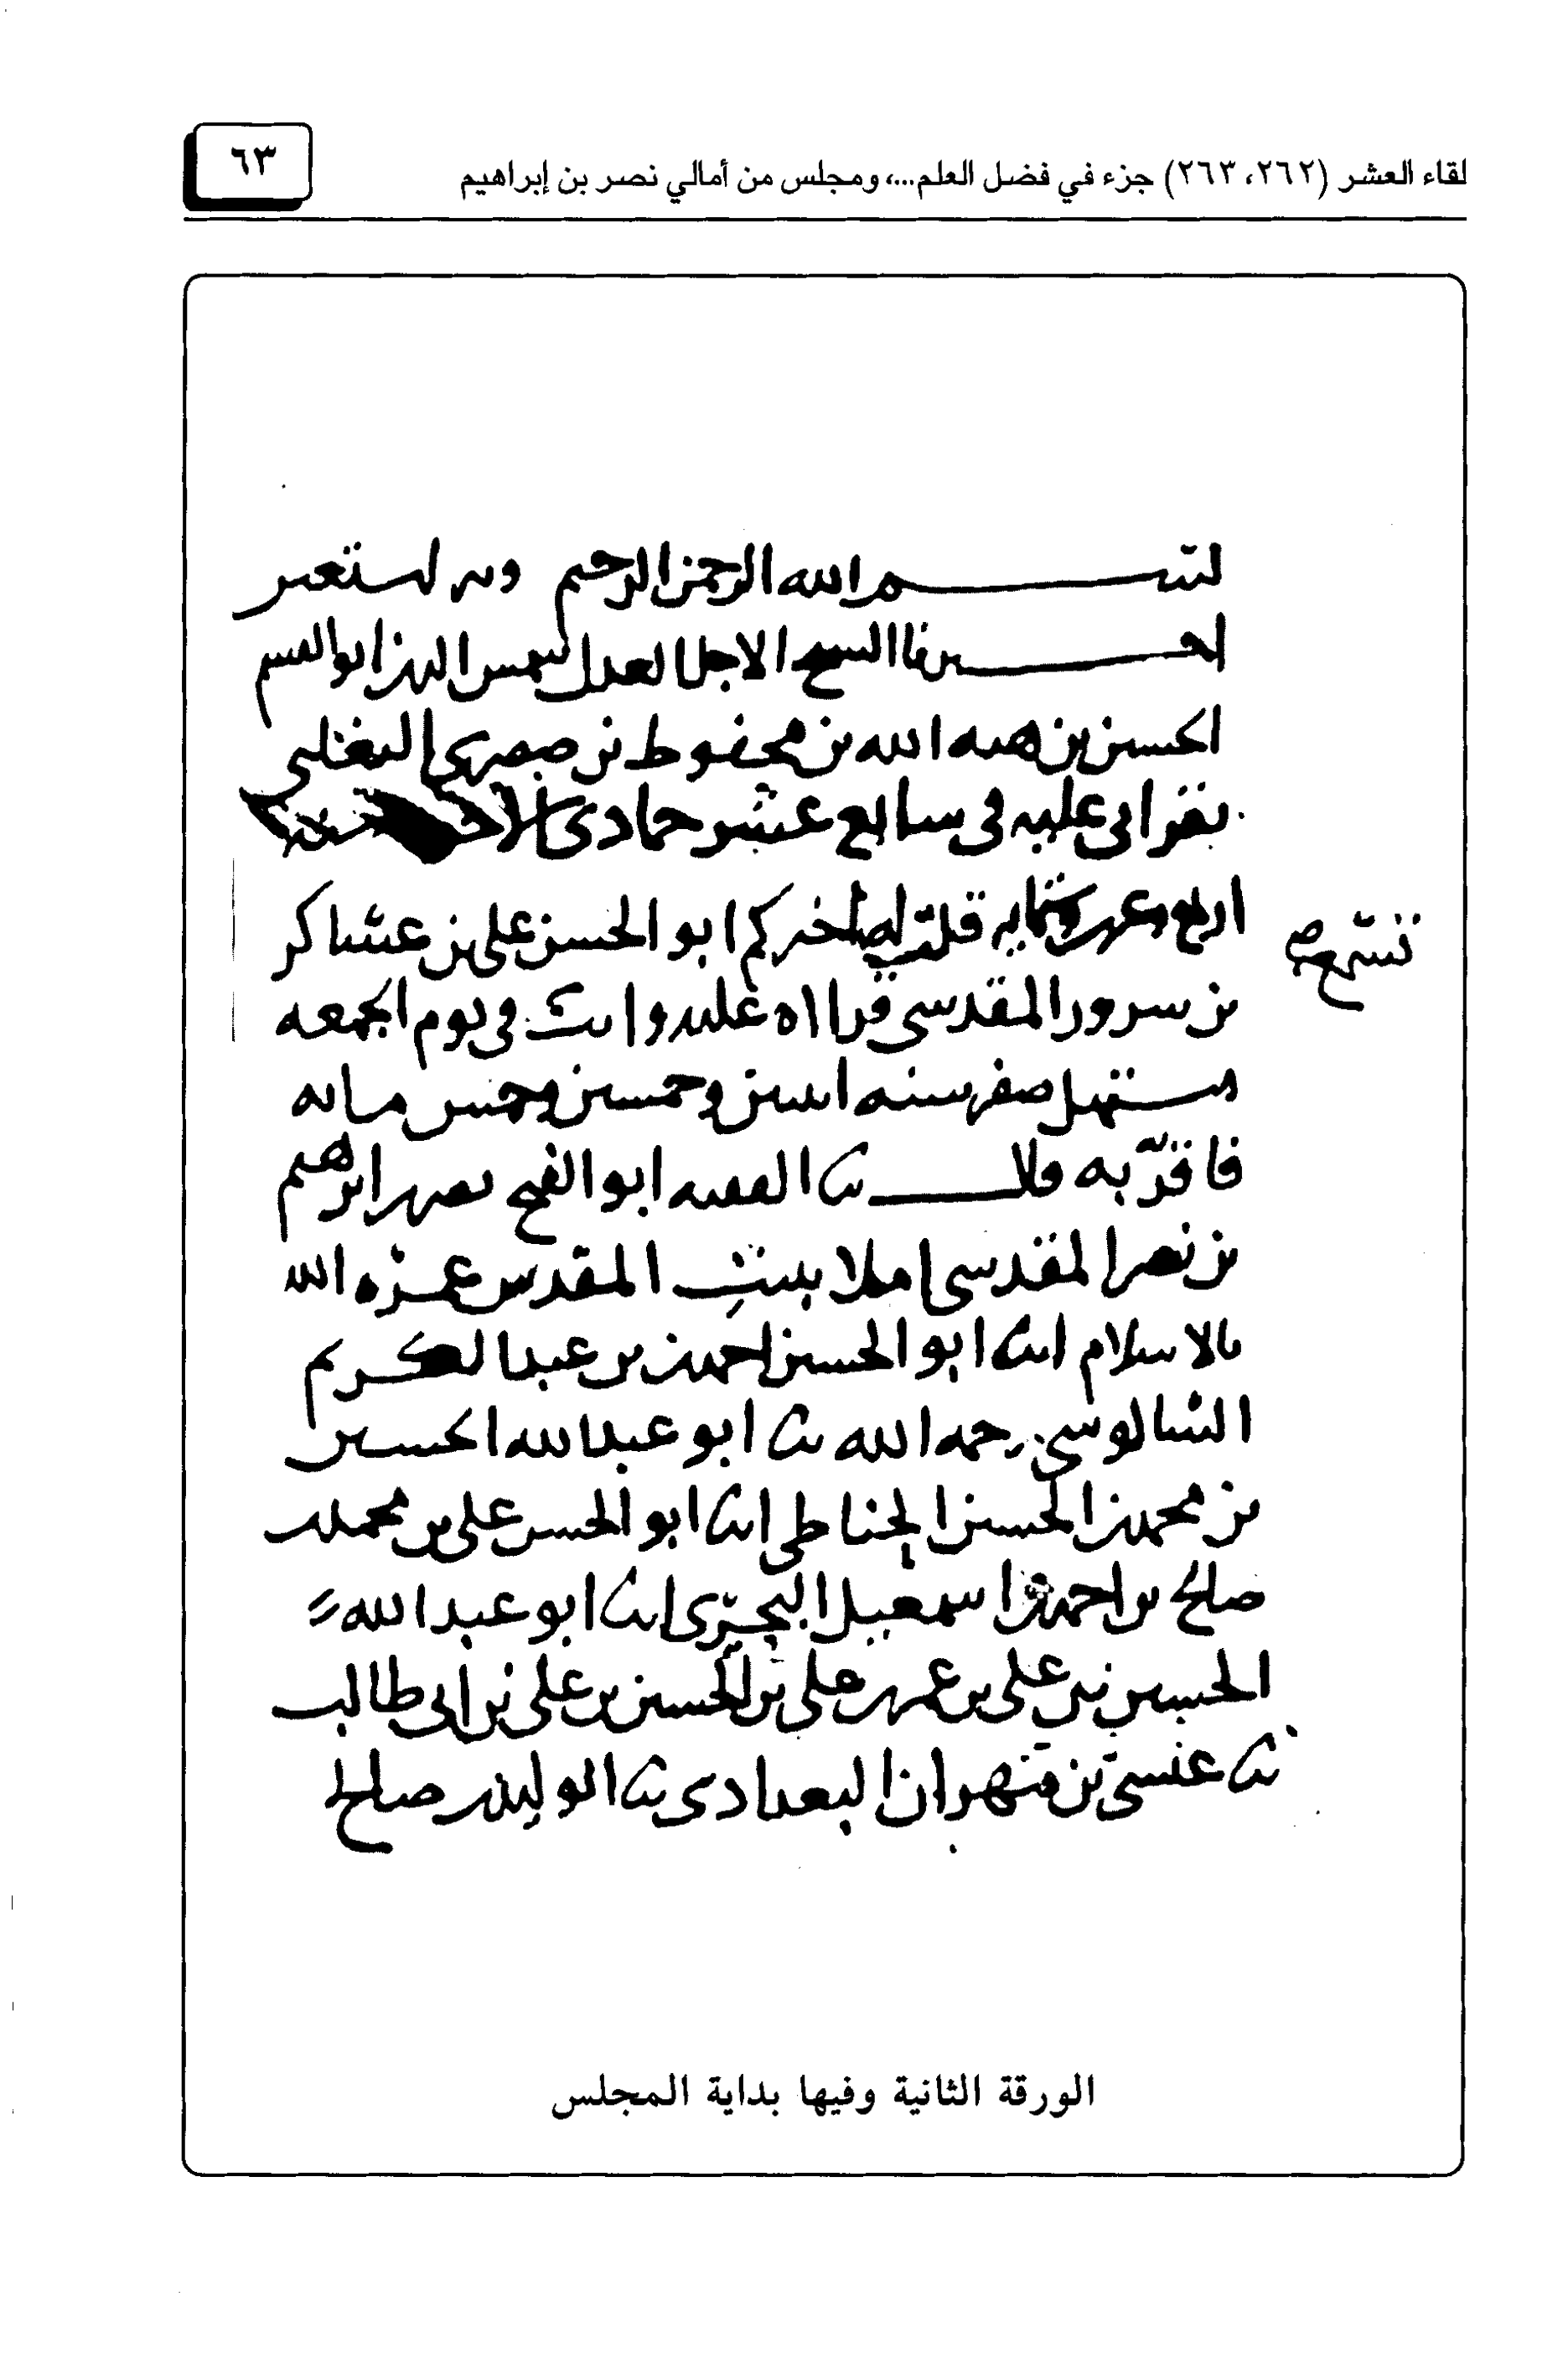 لقاء العشر (٢٦٢، ٢٦٣) جزء في فضل العلم...، ومجلس من أمالي نصر بن إبراهيم
٦٣
بسم الله الرحمن الرحيم وبه نستعين
اخبرنا الشيخ الاجل العدل شمس الدين ابو القسم
الحسين بن هبه الله بن محفوظ بن صصرى التغلبي
بقراتي عليه في سابع عشر جمادى
اربع وعشرين وستمايه قلت له اخبركم ابو الحسن علي بن عساكر
بن سرور المقدسي قرااه عليه وانت في يوم الجمعه
مستهل صفر سنه اثنين وخمسين وخمس مايه
فاقر به قال ثنا الفقيه ابو الفتح نصر بن ابرهيم
بن نصر المقدسي املا ببيت المقدس عمره الله
بالاسلام انا ابو الحسن احمد بن عبد الكريم
الشالوسي رحمه الله ثنا ابو عبد الله الحسين
بن محمد بن الحسن الحناطي انا ابو الحسن علي بن محمد
صالح بن احمد بن اسمعيل البجيري انا ابو عبد الله
الحسين بن علي بن عمر علي بن الحسين بن علي بن ابي طالب
ثنا عيسى بن مهران البغدادي ثنا الوليد صالح
الورقة الثانية وفيها بداية المجلس